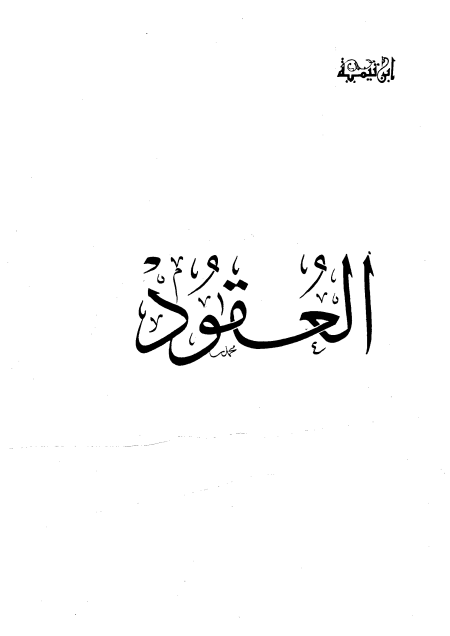 ابن تيمية
العُقُود
محمد